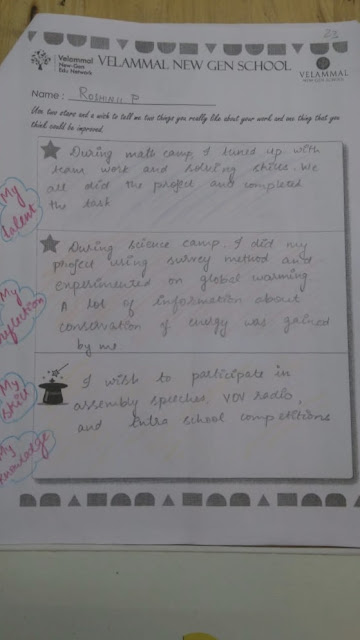 23
Velammal
New-Gen
Edu Network
VELAMMAL NEW GEN SCHOOL
VELAMMAL
NEW GEN SCHOOL
Name : ROSHINI P
Use two stars and a wish to tell me two things you really like about your work and one thing that you
think could be improved.
During math camp, I tuned up with
team work and solving skills. We
all did the project and completed
the task
My
talent
During science camp.. I did my
project using survey method and
experimented on global warming
A lot of information about
conservation of energy was gained
by me.
My
reflection
I wish to participate in
assembly speeches, VOV radio,
and Intra school competitions
My
skill
My
knowledge